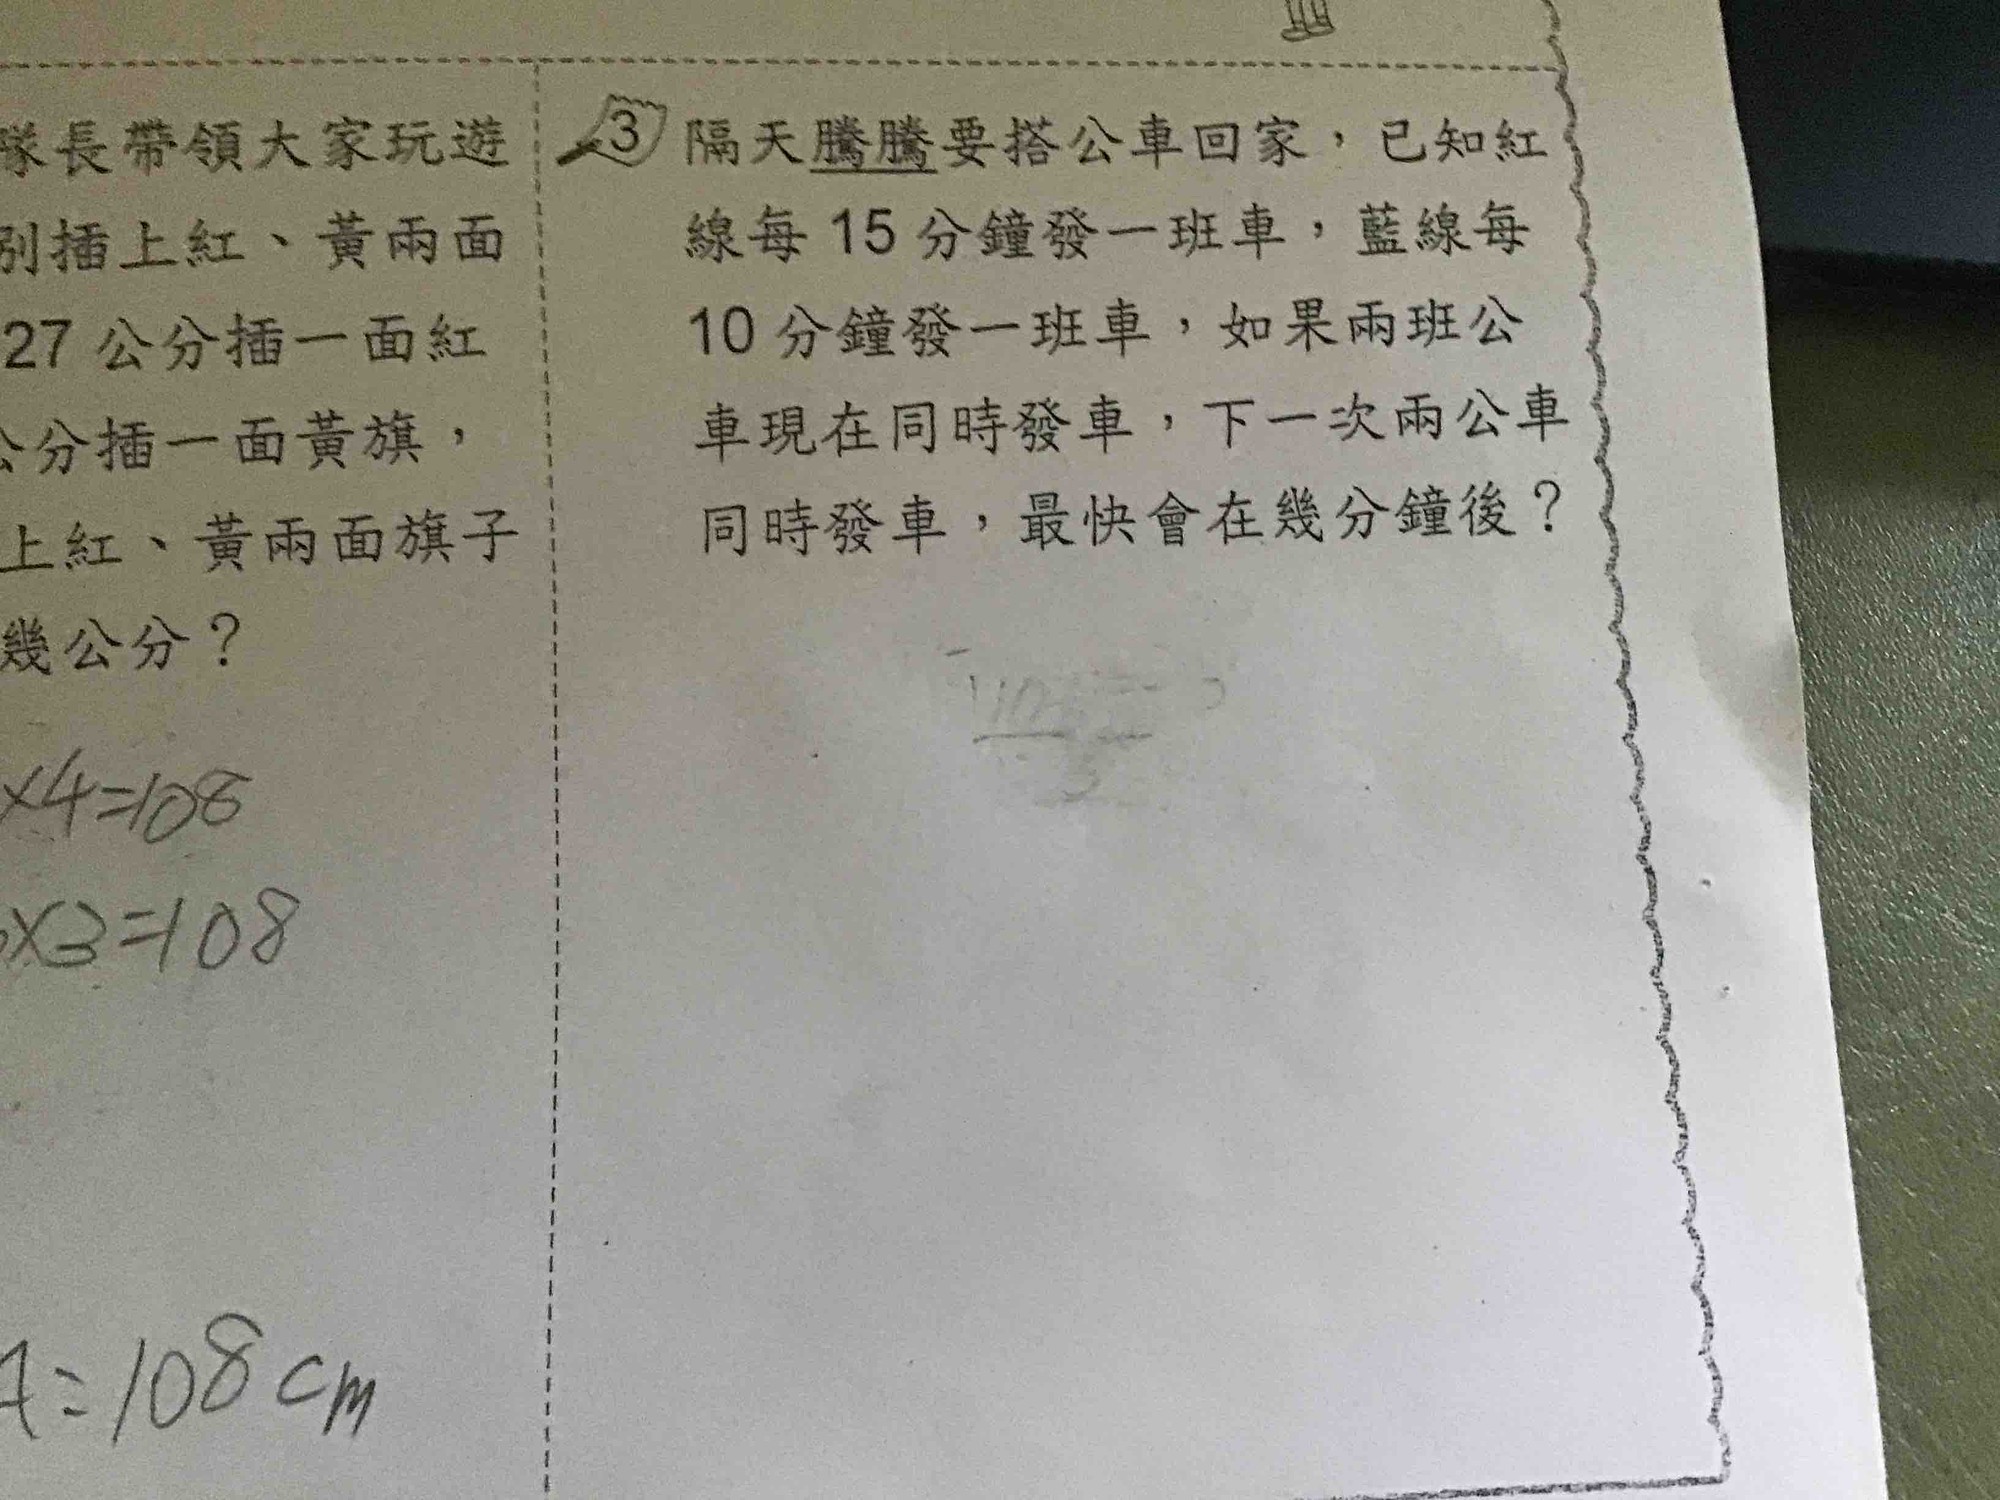 隊長帶領大家玩遊
別插上紅、黃兩面
27 公分插一面紅
公分插一面黃旗，
上紅、黃兩面旗子
幾公分？
×4=108
×3=108
A=108cm
3 隔天騰騰要搭公車回家，已知紅
線每 15 分鐘發一班車，藍線每
10 分鐘發一班車，如果兩班公
車現在同時發車，下一次兩公車
同時發車，最快會在幾分鐘後？